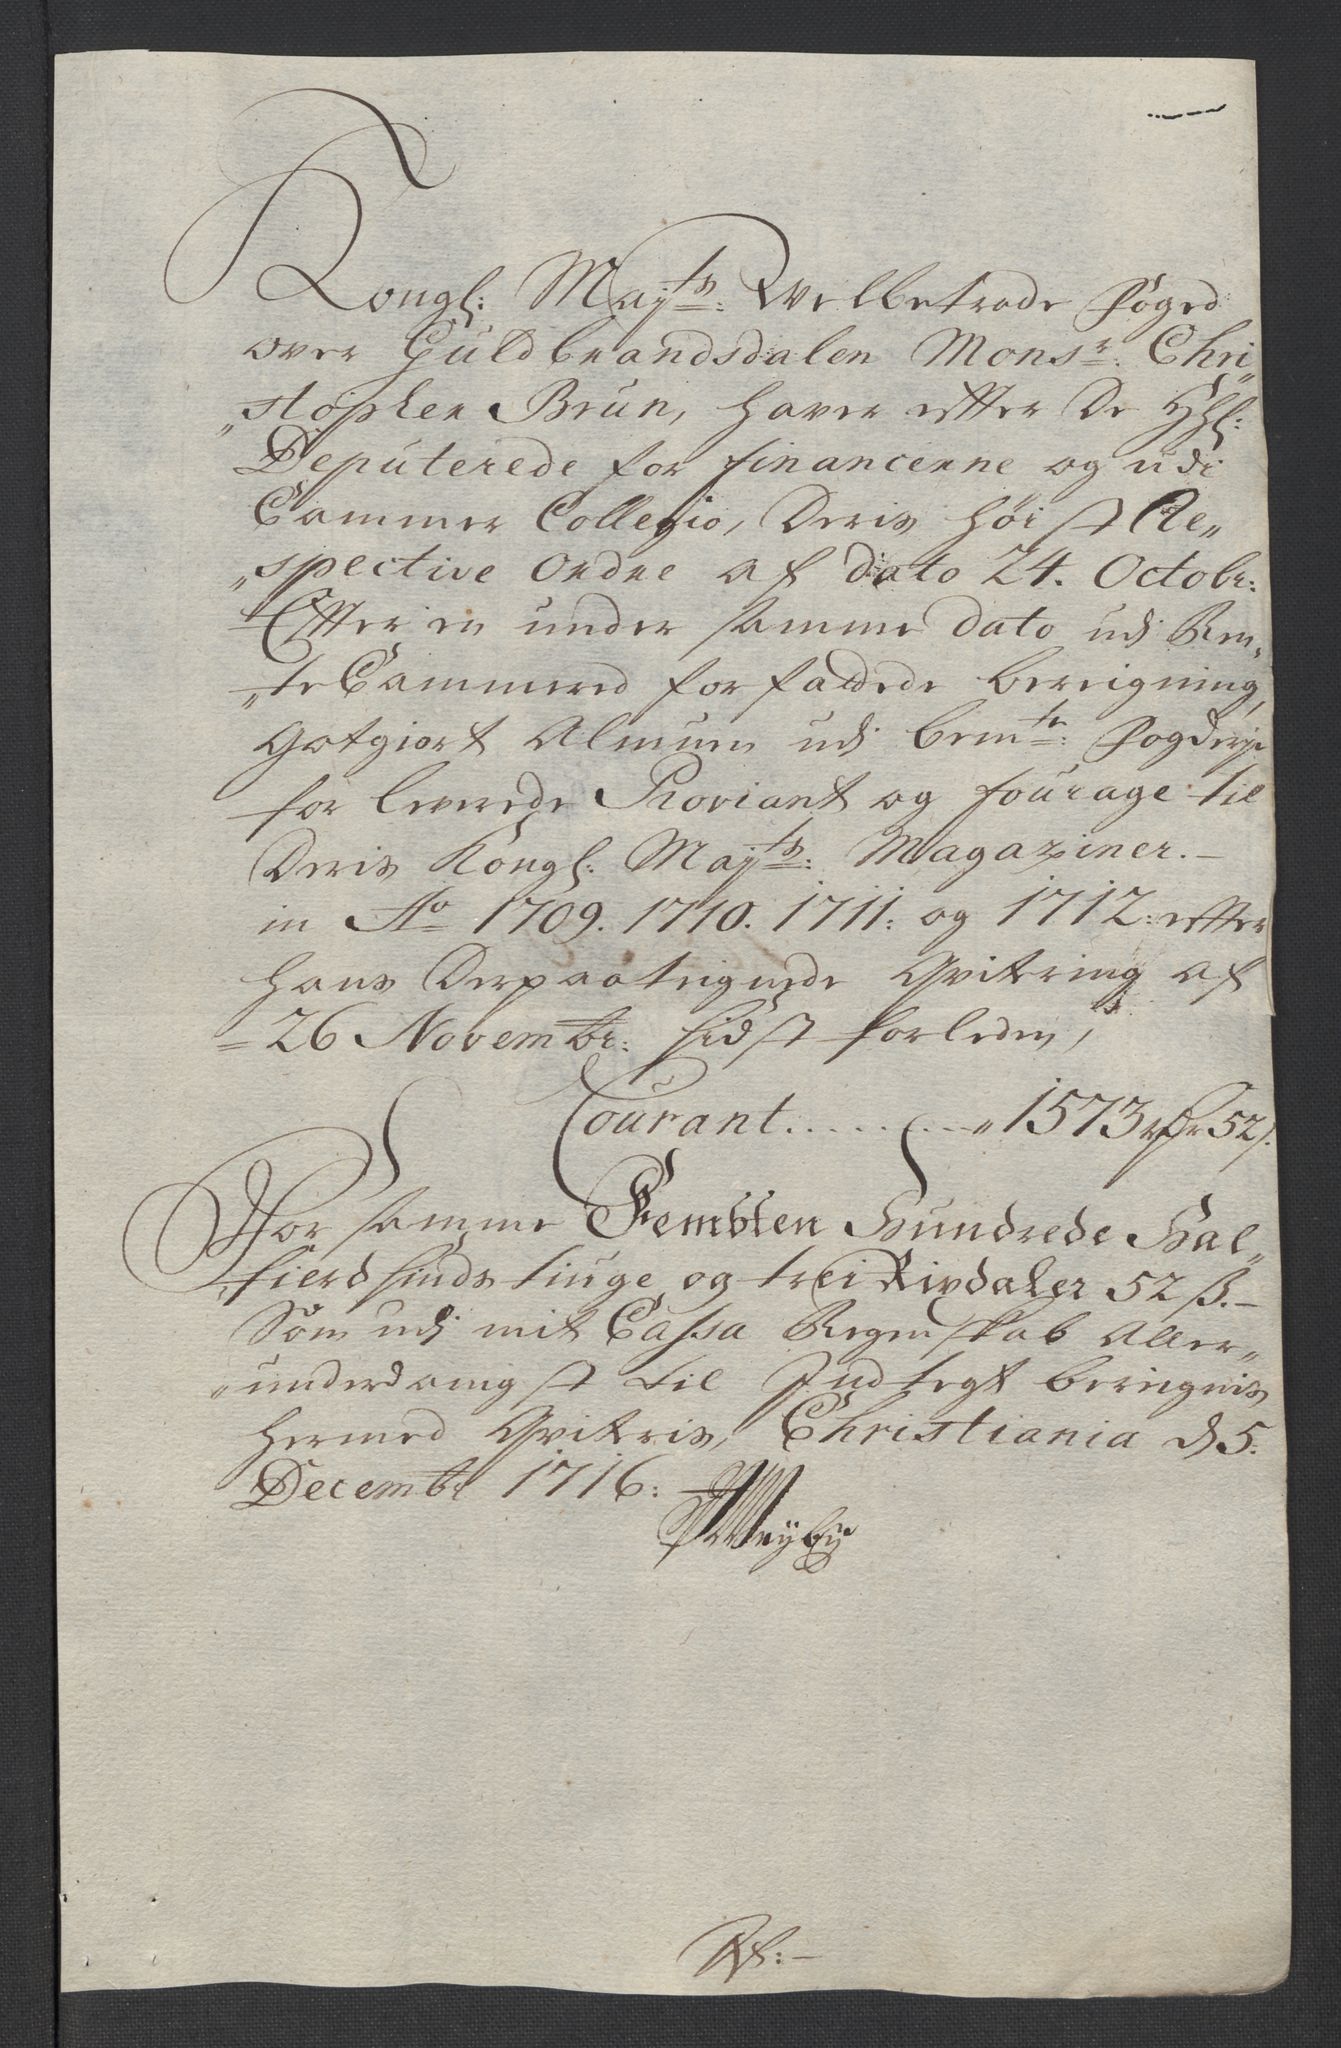 Kongl: Mayts: Welbetrode Foged
over Guldbrandsdalen Monsr. Chri„
„stopher Brun, haver effter De Hhl:
Deputerede for financerne og udi
Cammer Collegio, Deris høist Re„
„spective Ordre af dato 24. Octobr:
Effter en under samme dato udj Ren„
„te Cammered forfattede bereigning,
Gotgiort Almuen udj bemte: Fogderje
for leverede Proviant og fourage til
Deris Kongl: Mayts: Magaziner.
in Ao 1709. 1710. 1711: og 1712: effter
hans Derpaateignede Qvitering af
26 Novembr: sidst forleden,
Courant . . . . . . . . „ 1573 rdr 52 s.
For samme Fembten Hundrede Hal„
„fierdsinds tiuge og trei Rixdaler 52 ß. –
Som udj mit Cassa Regenskab Aller„
„underdanigst til Indtegt beregnis
hermed Qviteris, Christiania d 5.
Decembr 1716: